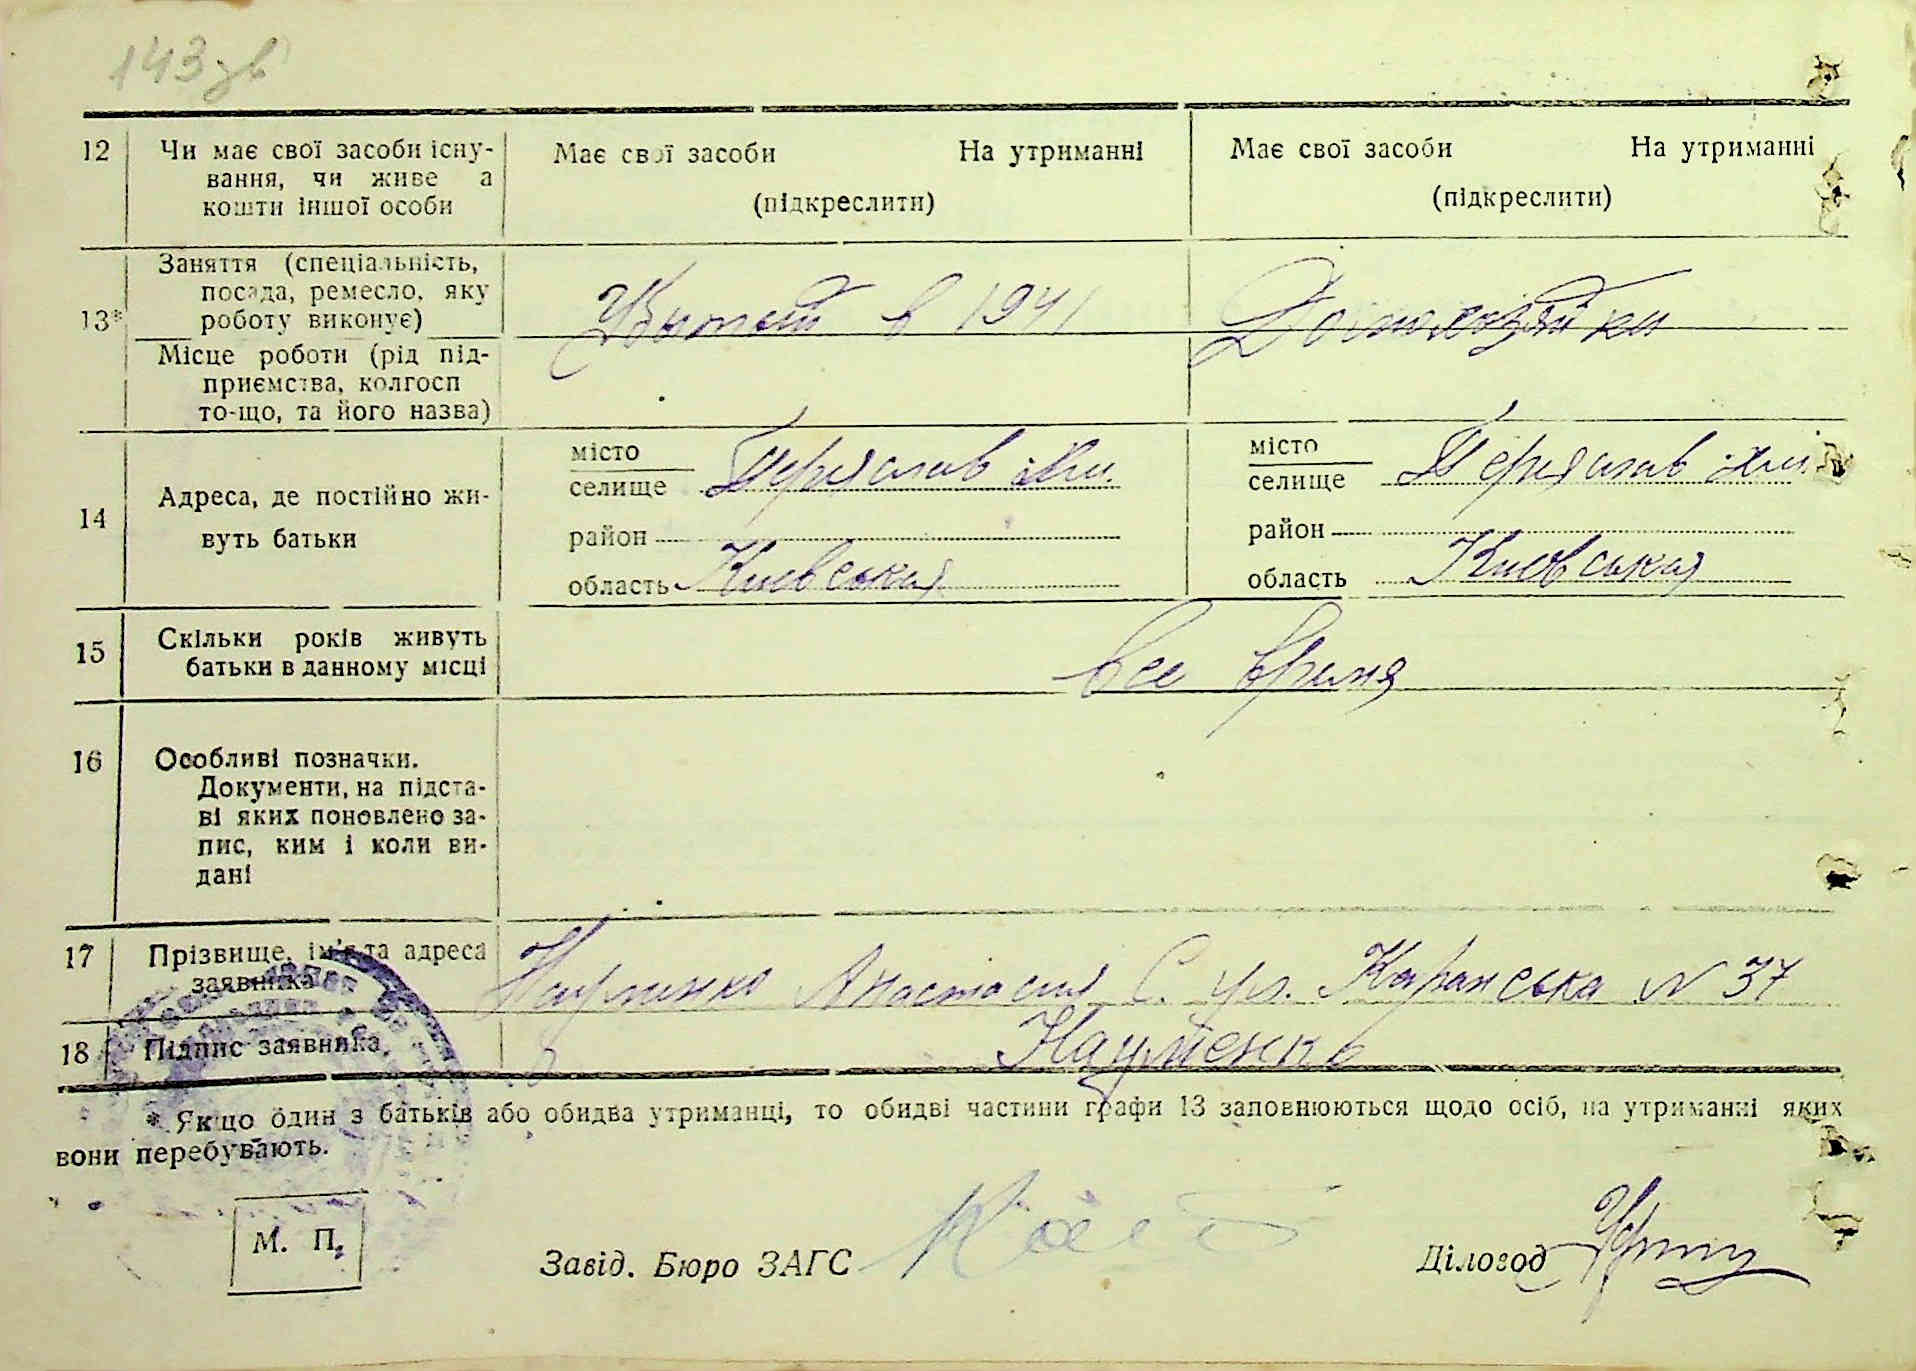 143 зв
12 Чи має свої засоби існу-
вання, чи живе а
кошти іншої особи
Має свої засоби На утриманні
(підкреслити)
Має свої засоби На утриманні
(підкреслити)
13* Заняття (спеціальність,
посада, ремесло, яку
роботу виконує)
в 1941
Домохозяйки
Місце роботи (рід під-
приємства, колгосп
то-що, та його назва)
14 Адреса, де постійно жи-
вуть батьки
місто
селище Переяслав Хм.
район
область Киевська
місто
селище Переяслав Хм.
район
область Киевська
15 Скільки років живуть
батьки в данному місці
все время
16 Особливі позначки.
Документи, на підста-
ві яких поновлено за-
пис, ким і коли ви-
дані
17 Прізвище, ім'я та адреса
заявника
Науменко Анастасия С. ул. Каранська № 37
18 Підпис заявника
Науменко
* Якщо один з батьків або обидва утриманці, то обидві частини графи 13 заповнюються щодо осіб, на утриманні яких
вони перебувають.
М. П.
Завід. Бюро ЗАГС
Діловод